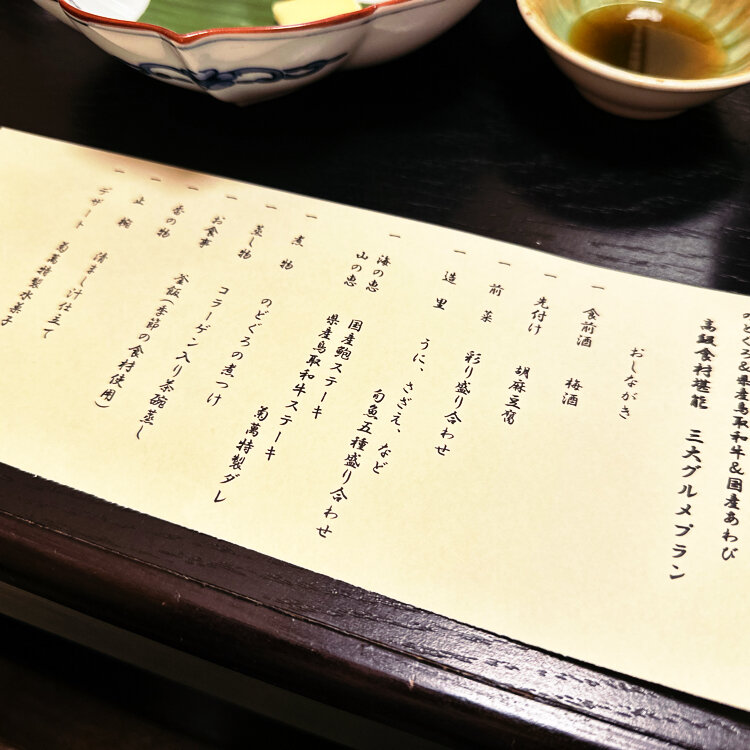 のどぐろ&県産鳥取和牛&国産あわび
高級食材堪能 三大グルメプラン
おしながき
一 食前酒 梅酒
一 先付け 胡麻豆腐
一 前菜 彩り盛り合わせ
一 造里 うに、さざえ、など
旬魚五種盛り合わせ
一 海の恵 国産鮑ステーキ
山の恵 県産鳥取和牛ステーキ
菊萬特製ダレ
一 煮物 のどぐろの煮つけ
一 蒸し物 コラーゲン入り茶碗蒸し
一 お食事 釜飯(季節の食材使用)
一 香の物
一 止椀 清まし汁仕立て
一 デザート 菊萬特製水菓子